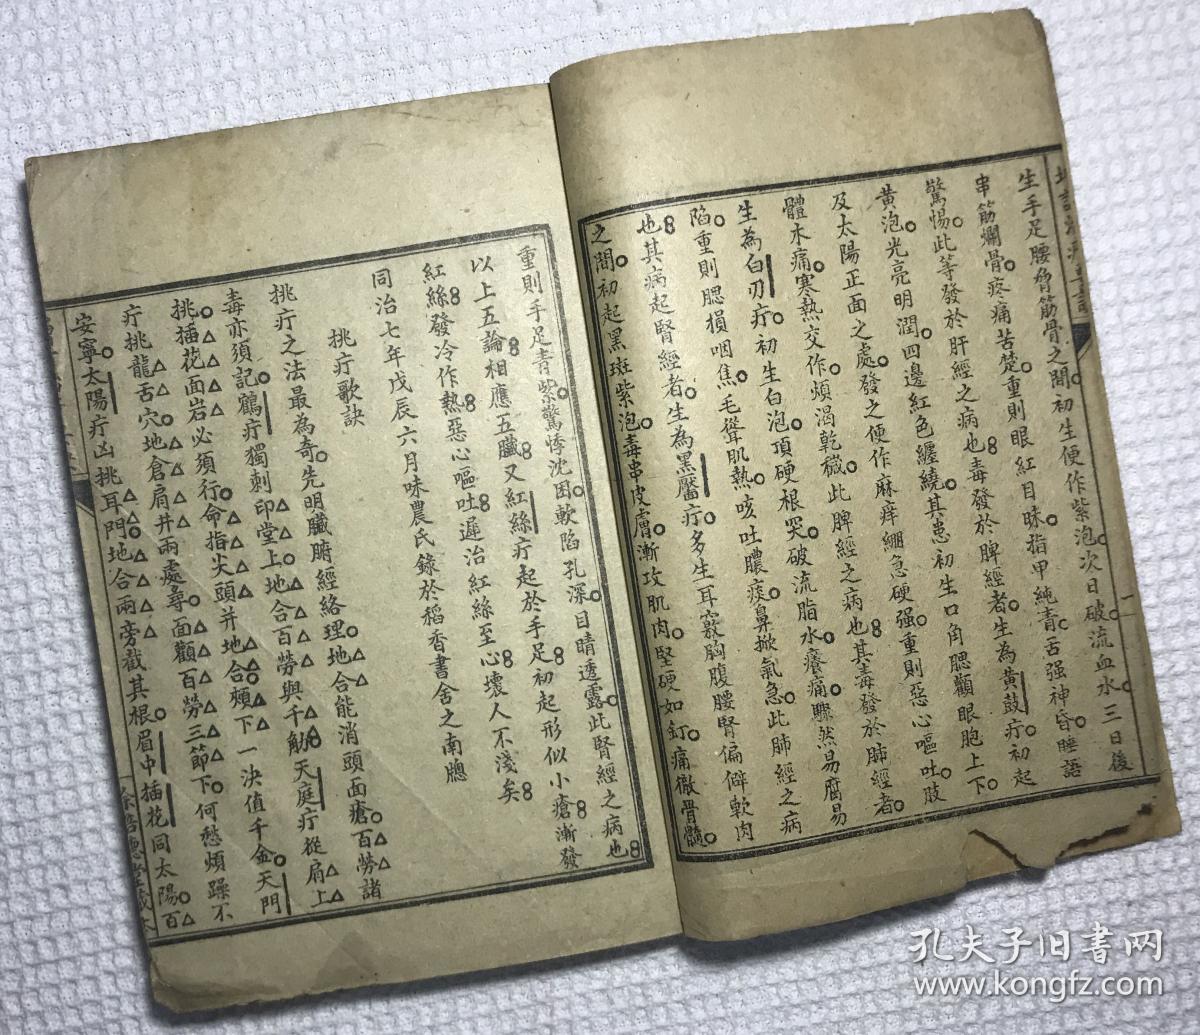 生手足腰脅筋骨之間初生便作紫泡次日破流血水三日後
串筋爛骨疼痛苦楚重則眼紅目昧指甲純青舌强神昏睡語
驚惕此等發於肝經之病也毒發於脾經者生為黄鼓疔初起
黄泡光亮明潤四邊紅色纏繞其患初生口角腮顴眼胞上下
及太陽正面之處發之便作麻痒綳急硬强重則惡心嘔吐肢
體木痛寒熱交作煩渴乾穢此脾經之病也其毒發於肺經者
生為白刃疔初生白泡頂硬根突破流脂水癢痛驟然易腐易
陷重則腮損咽焦毛聳肌熱咳吐膿痰鼻掀氣急此肺經之病
也其病起腎經者生為黑靨疔多生耳竅胸腹腰腎偏僻軟肉
之間初起黑斑紫泡毒串皮膚漸攻肌肉堅硬如釘痛徹骨髓
重則手足青紫驚悸沈困軟陷孔深目睛透露此腎經之病也
以上五論相應五臟又紅絲疔起於手足初起形似小瘡漸發
紅絲發冷作熱惡心嘔吐遲治紅絲至心壞人不淺矣
同治七年戊辰六月味農氏錄於稻香書舍之南牕
挑疔歌訣
挑疔之法最為奇先明臟腑經絡理地合能消頭面瘡百勞諸
毒亦須記鶴疔獨刺印堂上地合百勞與千觔天庭疔從肩上
挑插花面岩必須行命指尖頭并地合頰下一決值千金天門
疔挑龍舌穴地倉肩井兩處尋面顴百勞三節下何愁煩躁不
安寧太陽疔凶挑耳門地合兩旁截其根眉中插花同太陽百
一
徐培德堂藏本
孔夫子旧書网
www.kongfz.com